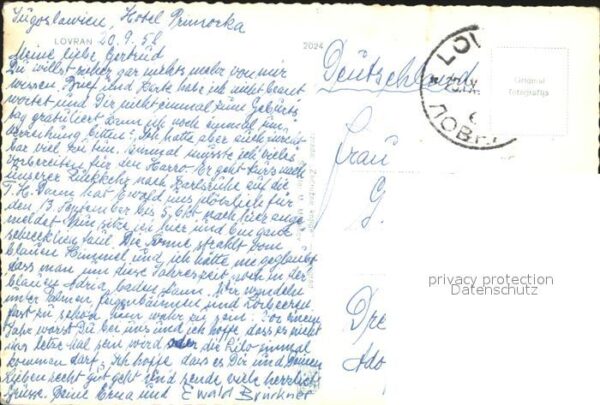 Jugoslawien, Hotel Primorka
LOVRAN 20.9.58
2024
Meine liebe Gertrud
Du willst sicher gar nichts mehr von mir
wissen. Brief und Karte habe ich nicht beant
wortet und Dir nicht einmal zum Geburts
tag gratuliert. Darf ich noch einmal um
Verzeihung bitten? Ich hatte aber auch furcht
bar viel zu tun. Einmal musste ich vieles
vorbereiten für den Harro. Er geht kurz nach
unserer Rückkehr nach Karlsruhe auf die
T.H. Dann hat Ewald uns plötzlich für
den 13. September bis 5. Okt. nach hier ange
meldet. Nun sitze ich hier und bin ganz
schrecklich faul. Die Sonne strahlt vom
blauen Himmel und ich hätte nie geglaubt
dass man um diese Jahreszeit noch in der
blauen Adria baden kann. Wir wandeln
unter Palmen, Feigenbäumen und Lorbeeren
fast zu schön um wahr zu sein. Vor einem
Jahr warst Du bei uns und ich hoffe dass es nicht
das letzte Mal sein wird oder die Lilo einmal
kommen darf. Ich hoffe dass es Dir und Deinen
Lieben recht gut geht und sende viele herzliche
Grüsse. Deine Erna und Ewald Bruckner
Deutschland
Frau
G.
Dre
Ado
Original
fotografija
privacy protection
Datenschutz